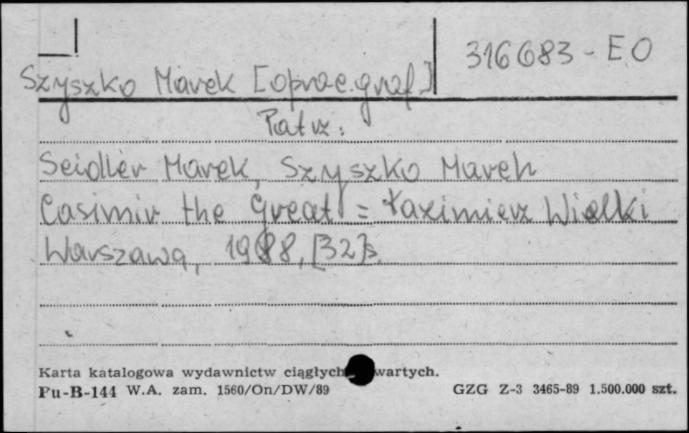 316683-EO
Szyszko Marek [oprac.graf.]
Patrz:
Seidler Marek, Szyszko Marek
Casimir the Great = Kazimierz Wielki
Warszawa, 1988, [32]s.
Karta katalogowa wydawnictw ciągłych wartych.
Pu-B-144 W.A. zam. 1560/On/DW/89 GZG Z-3 3465-89 1.500.000 szt.